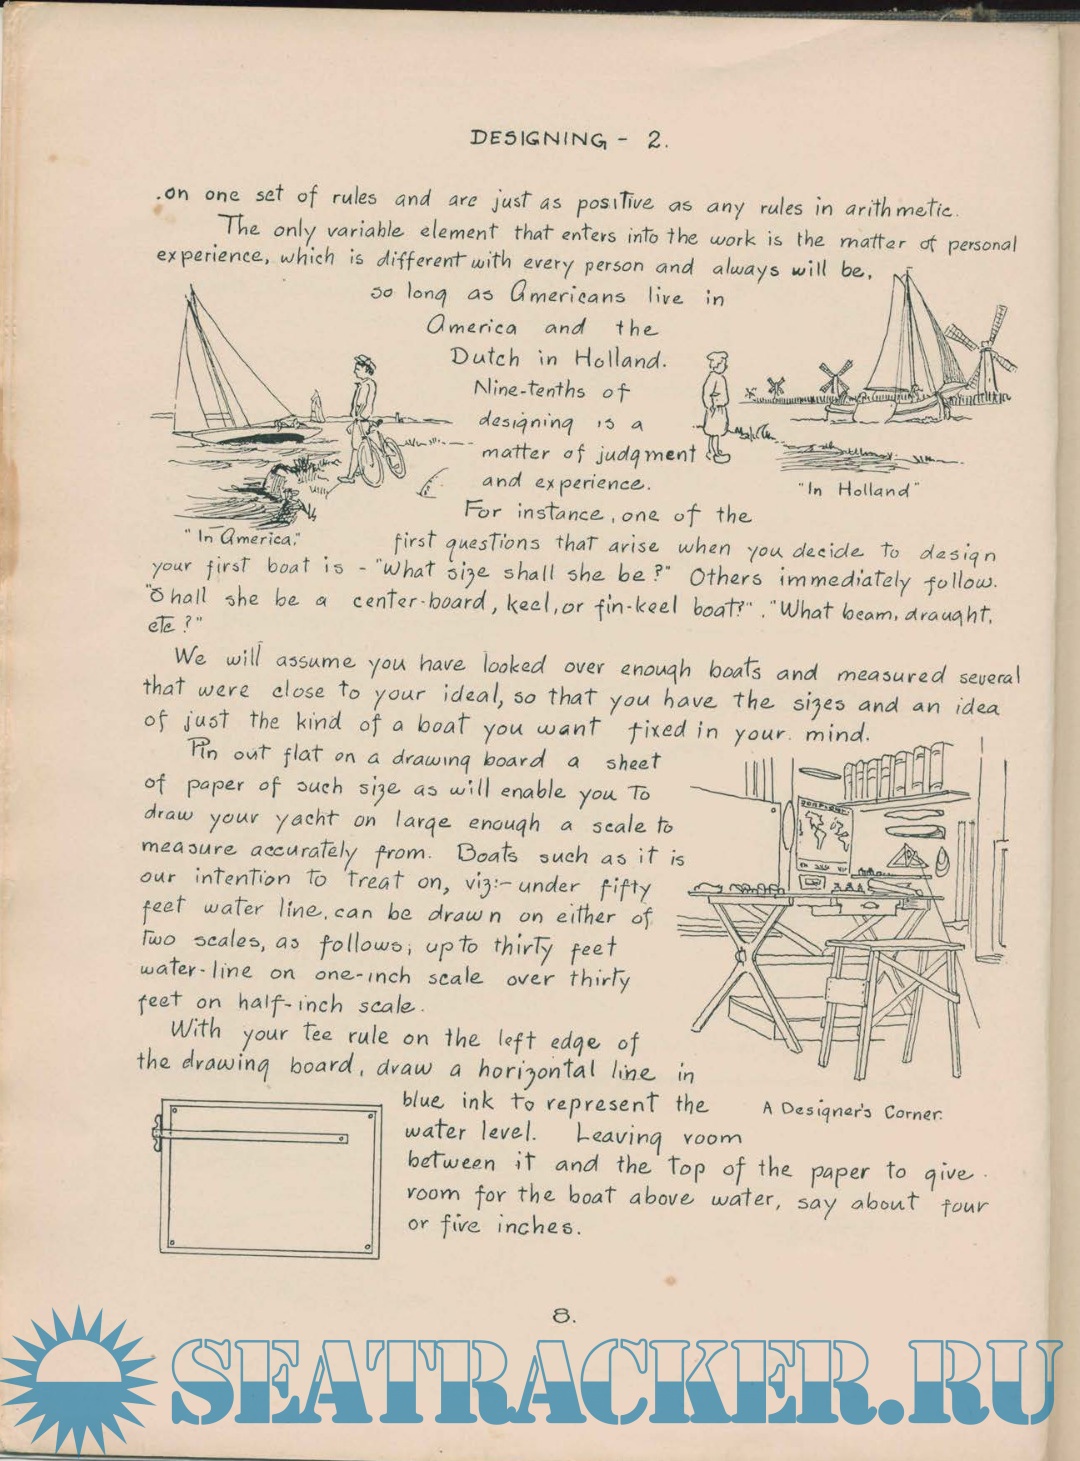 DESIGNING - 2.
.on one set of rules and are just as positive as any rules in arithmetic.
The only variable element that enters into the work is the matter of personal
experience, which is different with every person and always will be,
so long as Americans live in
America and the
Dutch in Holland.
Nine-tenths of
designing is a
matter of judgment
and experience.
"In Holland"
For instance, one of the
"In America."
first questions that arise when you decide to design
your first boat is - "What size shall she be?" Others immediately follow.
"Shall she be a center-board, keel, or fin-keel boat?". "What beam, draught,
etc?"
We will assume you have looked over enough boats and measured several
that were close to your ideal, so that you have the sizes and an idea
of just the kind of a boat you want fixed in your mind.
Pin out flat on a drawing board a sheet
of paper of such size as will enable you to
draw your yacht on large enough a scale to
measure accurately from. Boats such as it is
our intention to treat on, viz:- under fifty
feet water line, can be drawn on either of
two scales, as follows; up to thirty feet
water-line on one-inch scale over thirty
feet on half-inch scale.
With your tee rule on the left edge of
the drawing board, draw a horizontal line in
blue ink to represent the
A Designer's Corner.
water level. Leaving room
between it and the top of the paper to give
room for the boat above water, say about four
or five inches.
8.
SEATRACKER.RU